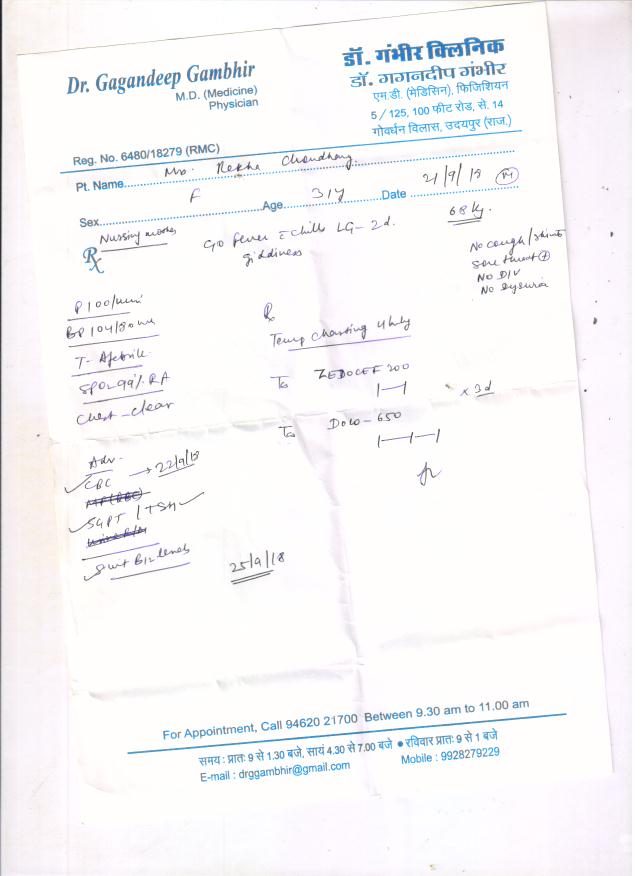 Dr. Gagandeep Gambhir
M.D. (Medicine)
Physician
डॉ. गंभीर क्लिनिक
डॉ. गगनदीप गंभीर
एम.डी. (मेडिसिन), फिजिशियन
5/125, 100 फीट रोड, से. 14
गोवर्धन विलास, उदयपुर (राज.)
Reg. No. 6480/18279 (RMC)
Pt. Name Mrs. Rekha Choudhary
Sex F Age 31y Date 21/9/18 M
Nursing mother
C/o fever c̄ chills LG - 2d.
giddiness
68 kg.
No cough/
Sore throat +
No D/V
No dysuria
Rx
P 100/min
BP 104/80
T - Afebrile
SPO2 99% RA
Chest - clear
Rx
Temp Charting 4 hrly
ZEDOCEF 200
x 3d
DOLO - 650
Adv -
CBC → 22/9/18
MP (QBC)
SGPT / TSH
Urine R/M
B12 levels
25/9/18
For Appointment, Call 94620 21700 Between 9.30 am to 11.00 am
समय : प्रातः 9 से 1.30 बजे, सायं 4.30 से 7.00 बजे ● रविवार प्रातः 9 से 1 बजे
E-mail : drggambhir@gmail.com Mobile : 9928279229